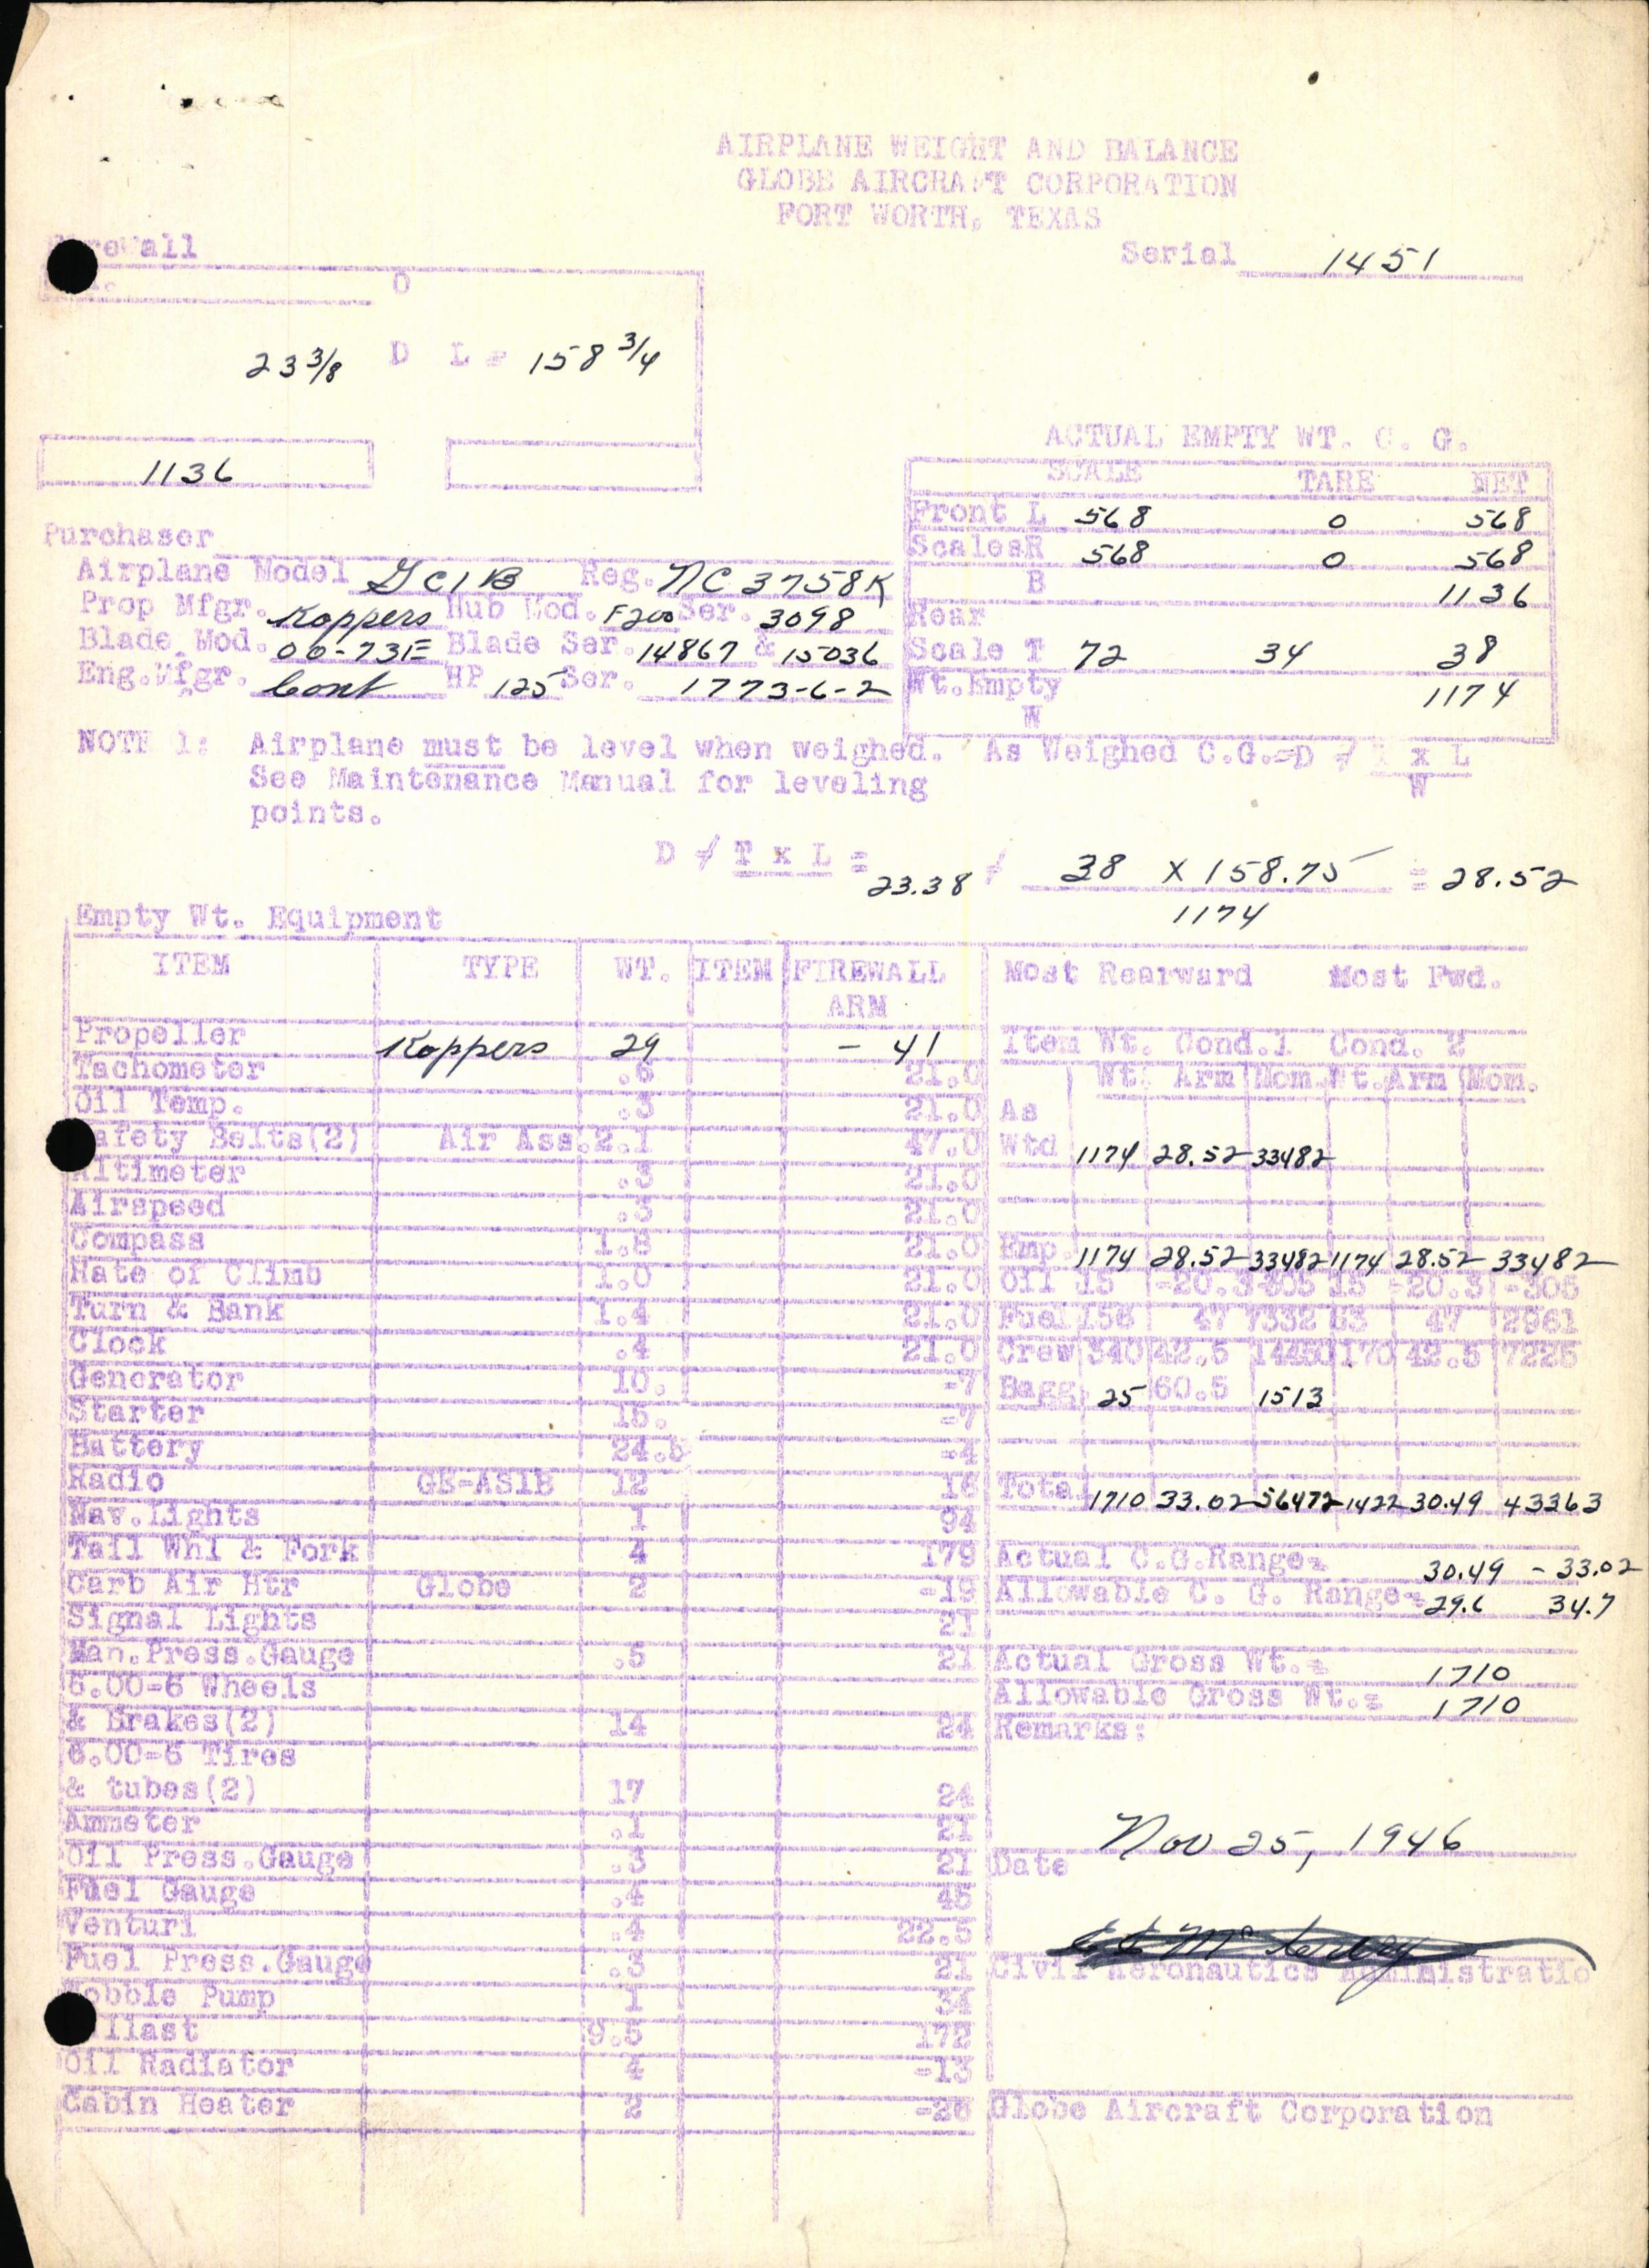 AIRPLANE WEIGHT AND BALANCE
GLOBE AIRCRAFT CORPORATION
FORT WORTH, TEXAS
Serial 1451
Firewall
O
23 3/8 D L = 158 3/4
1136
ACTUAL EMPTY WT. C. G.
SCALE TARE NET
Front L 568 0 568
ScalesR 568 0 568
B 1136
Rear
Scale T 72 34 38
Wt.Empty 1174
W
Purchaser
Airplane Model GC1B Reg. NC3758K
Prop Mfgr. Koppers Hub Mod. F200 Ser. 3098
Blade Mod. 00-73E Blade Ser. 14867 & 15036
Eng.Mfgr. Cont HP 125 Ser. 1773-6-2
NOTE 1: Airplane must be level when weighed. As Weighed C.G.=D ≠ T x L
See Maintenance Manual for leveling W
points.
D ≠ T x L = 23.38 ≠ 38 X 158.75 = 28.52
1174
Empty Wt. Equipment
ITEM TYPE WT. ITEM FIREWALL
ARM
Propeller Koppers 29 - 41
Tachometer .6 21.0
Oil Temp. .3 21.0
Safety Belts(2) Air Ass. 2.1 47.0
Altimeter .3 21.0
Airspeed .3 21.0
Compass 1.8 21.0
Rate of Climb 1.0 21.0
Turn & Bank 1.4 21.0
Clock .4 21.0
Generator 10. -7
Starter 15. -7
Battery 24.5 -4
Radio GE-AS1B 12 16
Nav.Lights 1 94
Tail Whl & Fork 4 179
Carb Air Htr Globe 2 -19
Signal Lights 21
Man.Press.Gauge .5 21
6.00-6 Wheels
& Brakes(2) 14 24
6.00-6 Tires
& tubes(2) 17 24
Ammeter .1 21
Oil Press.Gauge .3 21
Fuel Gauge .4 45
Venturi .4 22.5
Fuel Press.Gauge .3 21
Wobble Pump 1 34
Ballast 9.5 172
Oil Radiator 4 -13
Cabin Heater 2 -26
Most Rearward Most Fwd.
Item Wt. Cond.1 Cond. 2
Wt. Arm Mom. Wt. Arm Mom.
As
Wtd 1174 28.52 33482
Emp. 1174 28.52 33482 1174 28.52 33482
Oil 15 -20.3 -305 15 -20.3 -305
Fuel 156 47 7332 63 47 2961
Crew 340 42.5 14450 170 42.5 7225
Bagg. 25 60.5 1513
Total 1710 33.02 56472 1422 30.49 43363
Actual C.G.Range= 30.49 - 33.02
Allowable C. G. Range= 29.6 34.7
Actual Gross Wt.= 1710
Allowable Gross Wt.= 1710
Remarks:
Nov 25, 1946
Date
Civil Aeronautics Administratio
Globe Aircraft Corporation